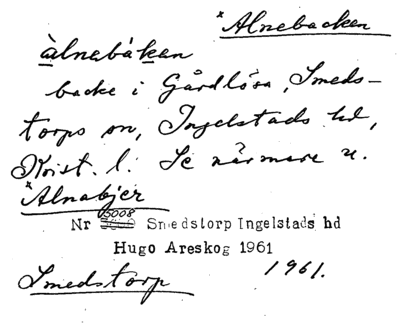 *Alnebacken
àlnebákan
backe i Gårdlösa, Smeds-
torps sn, Ingelstads hd,
Krist. l. Se närmare u.
*Alnabjer
Nr 5008 Smedstorp Ingelstads hd
Hugo Areskog 1961
Smedstorp 1961.